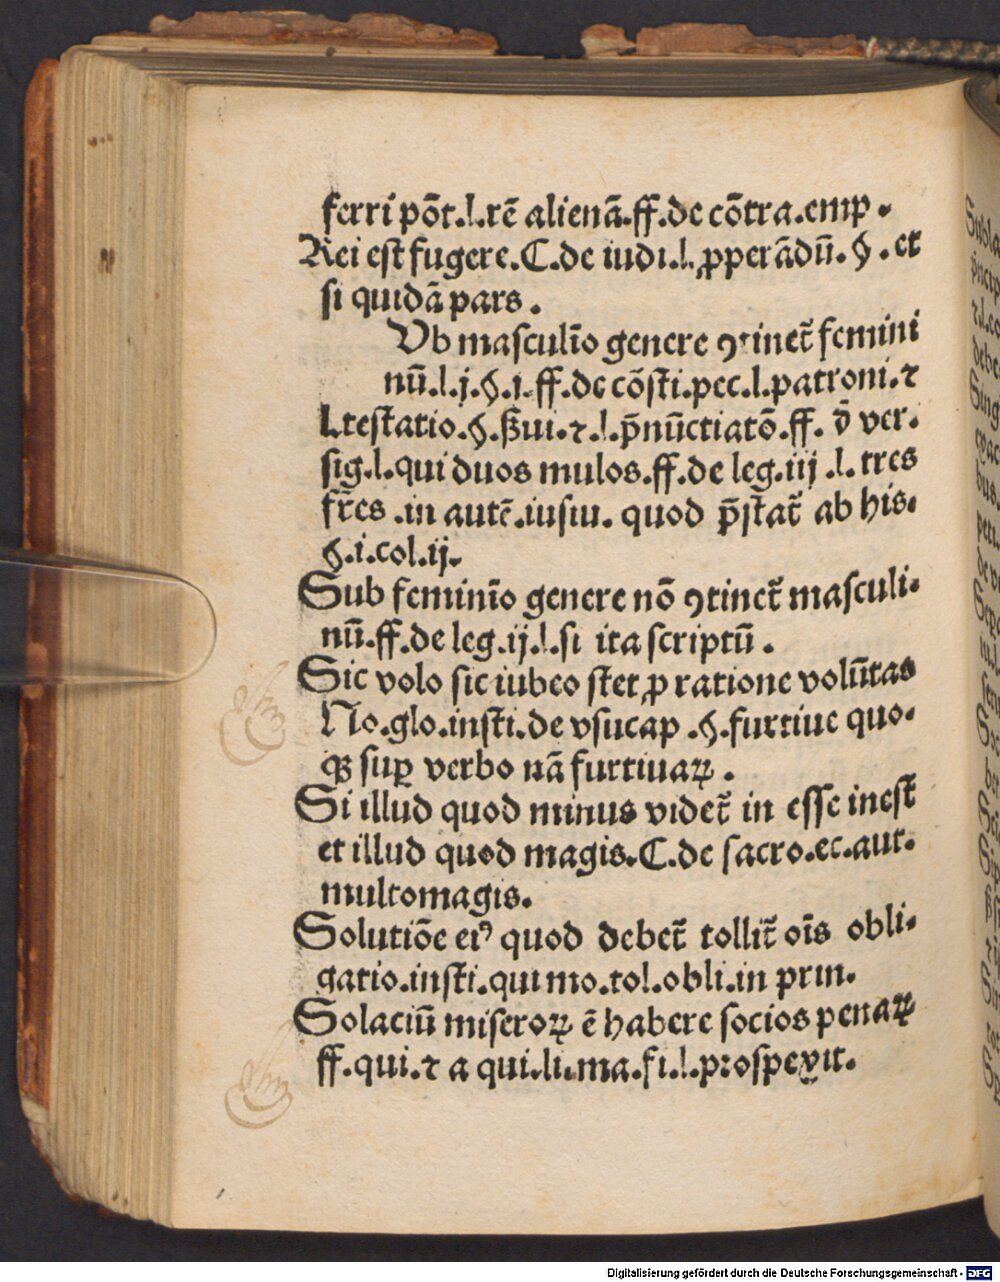 ferri põt.l.rẽ alienã.ff.de cõtra.emp.
Rei est fugere.C.de iudi.l.ꝓperãdũ.§.et
si quidã pars.
Vb masculĩo genere ꝯtinet̃ femini
nũ.l.j.§.i.ff.de cõsti.pec.l.patroni.⁊
l.testatio.§.ßui.⁊.l.p̃nũctiatõ.ff. d̃ ver.
sig.l.qui duos mulos.ff.de leg.iij.l.tres
fr̃es.in autẽ.iusiu. quod p̃stat̃ ab his.
§.i.col.ij.
Sub feminĩo genere nõ ꝯtinet̃ masculi-
nũ.ff.de leg.ij.l.si ita scriptũ.
Sic volo sic iubeo stet ꝓ ratione volũtas
No.glo.insti.de vsucap.§.furtiue quo-
qꝫ suꝑ verbo nã furtiuaꝝ.
Si illud quod minus videt̃ in esse inest
et illud quod magis.C.de sacro.ec.aut.
multomagis.
Solutiõe eiꝰ quod debet̃ tollit̃ oĩs obli-
gatio.insti.qui mo.tol.obli.in prin.
Solaciũ miseroꝝ ẽ habere socios penaꝝ
ff.qui.⁊ a qui.li.ma.fi.l.prospexit.
Digitalisierung gefördert durch die Deutsche Forschungsgemeinschaft - DFG